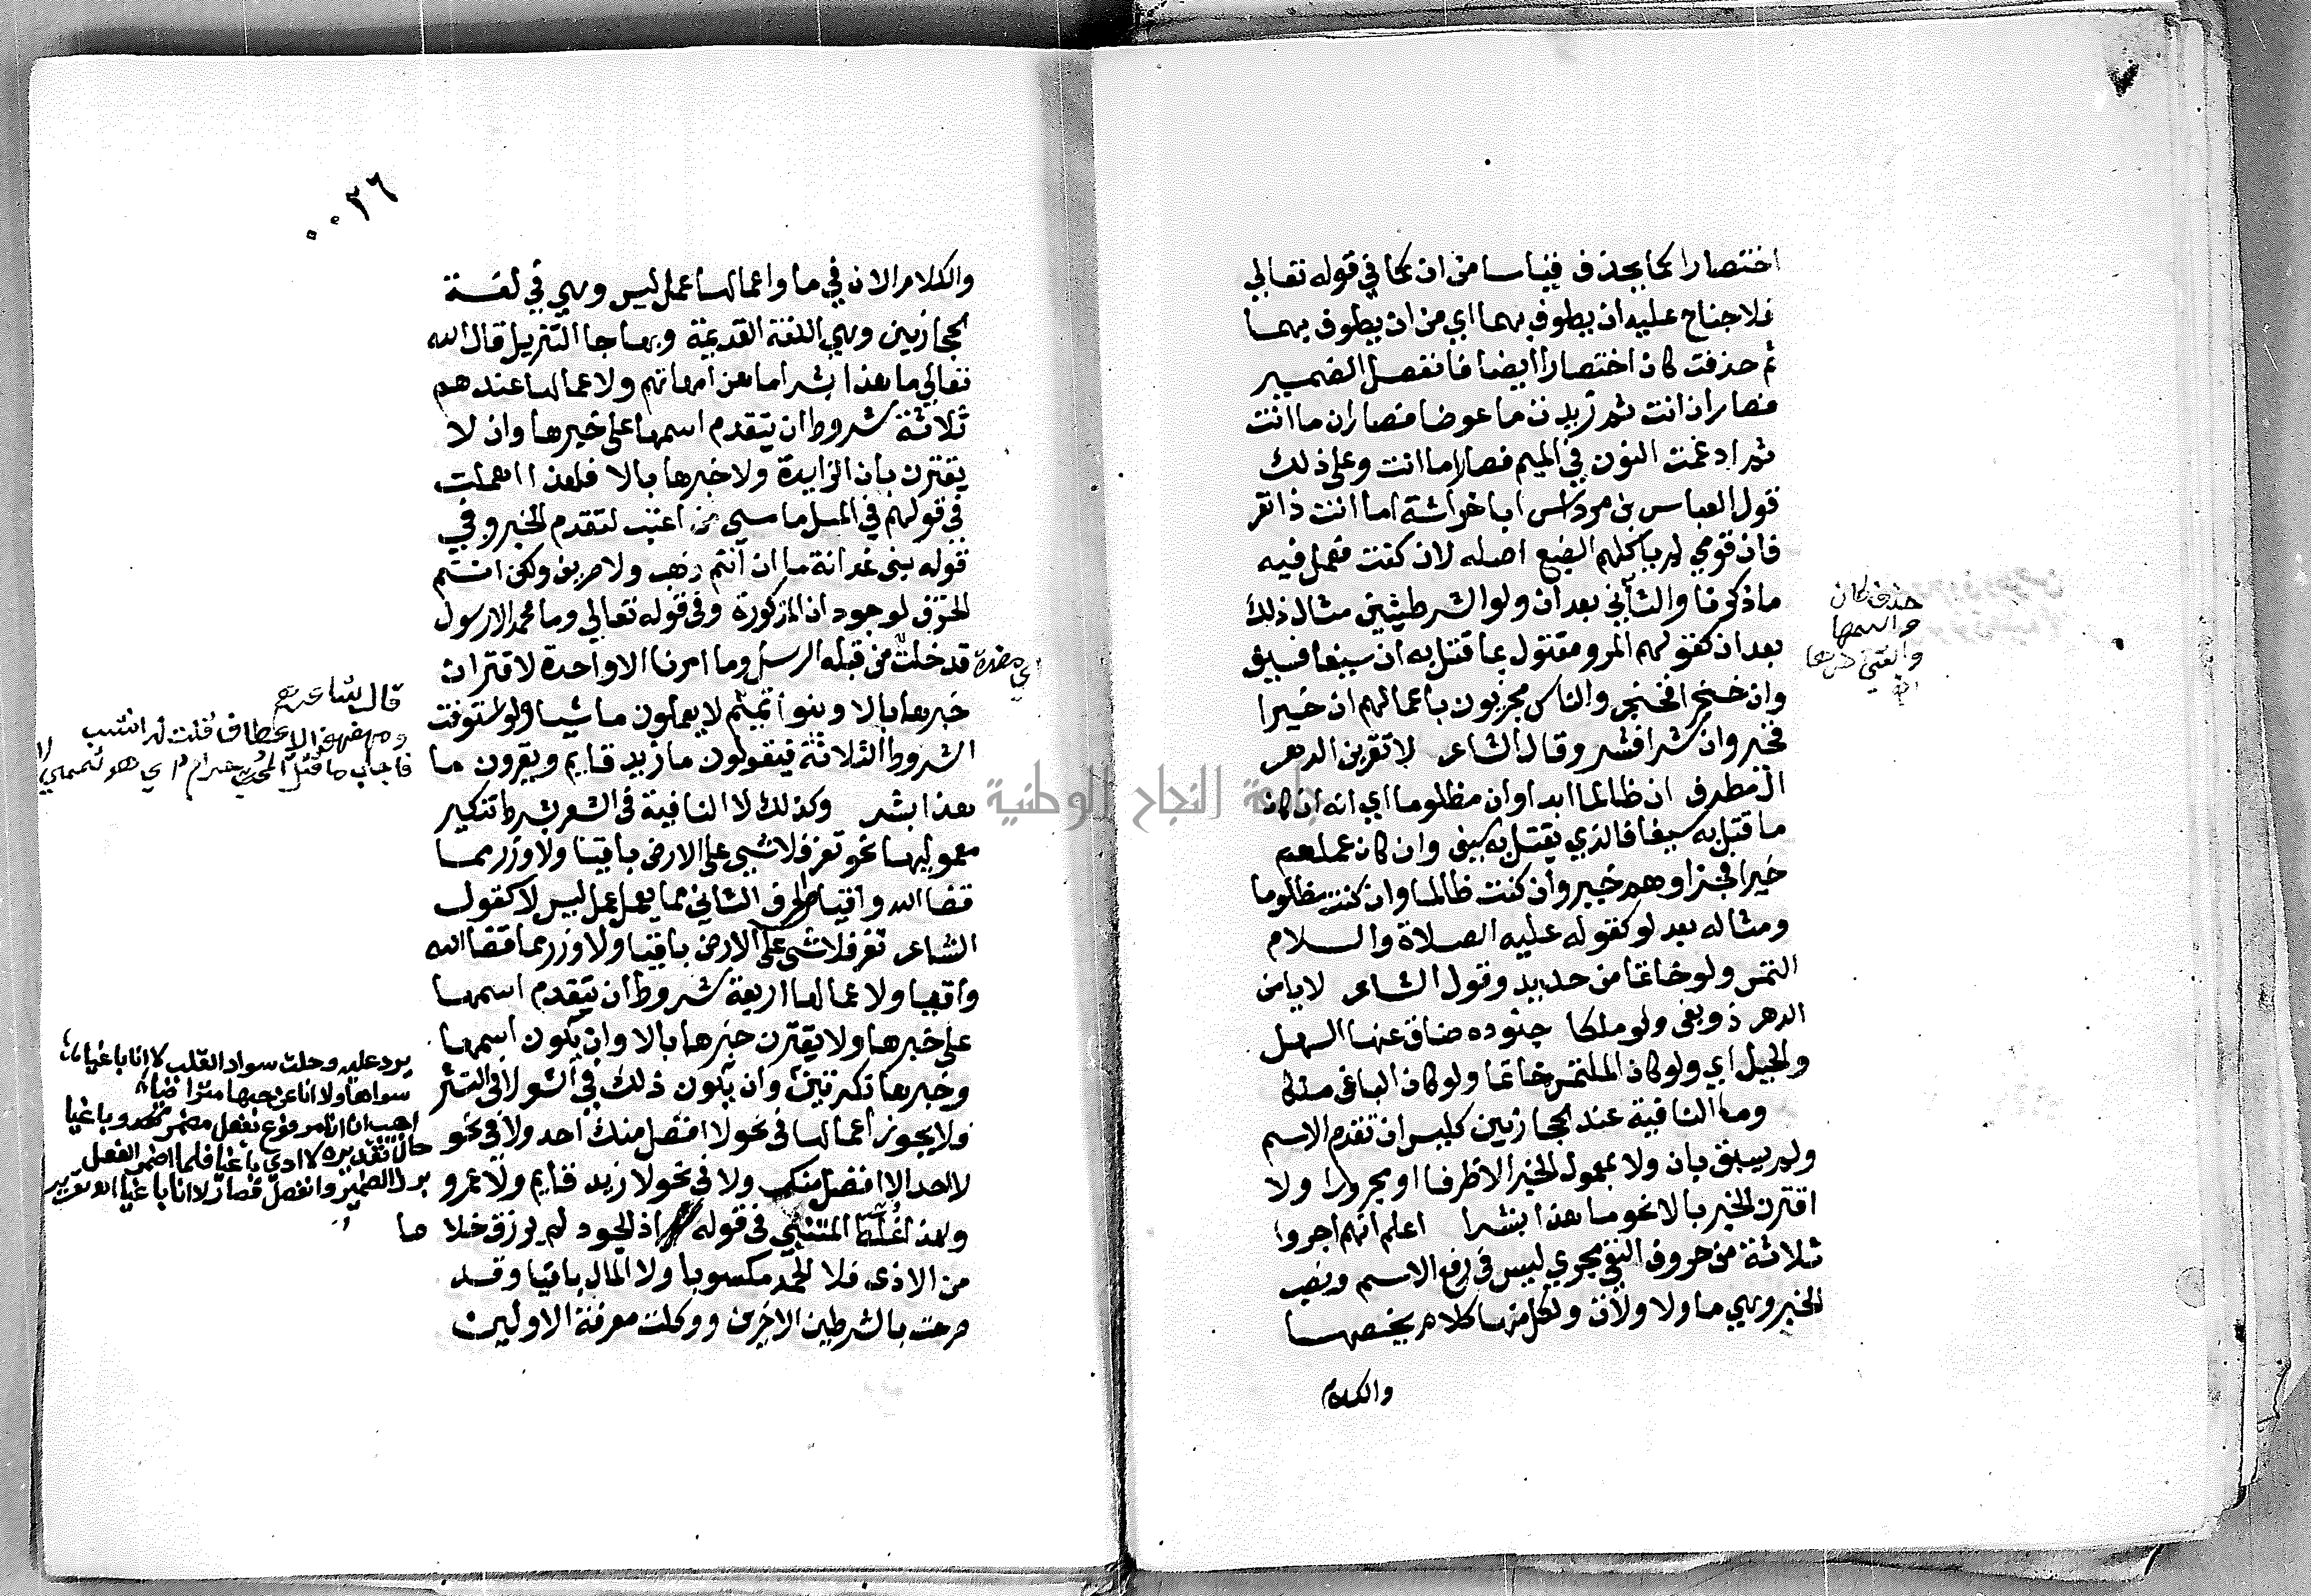 اختصارا كما يحذف قياسا من ان كما في قوله تعالي
فلا جناح عليه ان يطوف بهما اي من ان يطوف بهما
ثم حذفت كان اختصارا ايضا فانفصل الضمير
فصار ان انت ثم زيدت ما عوضا فصار ان ما انت
ثم ادغمت النون في الميم فصار اما انت وعلى ذلك
قول العباس بن مرداس ابا خراشة اما انت ذا نفر
فان قومي لم ياكلهم الضبع اصله لان كنت فعمل فيه
ما ذكرنا والثاني بعد ان ولو الشرطيتين مثال ذلك
بعد ان كقولهم المرو مقتول بما قتل به ان سيفا فسيف
وان خنجرا فخنجر والناس مجزيون باعمالهم ان خيرا
فخير وان شرا فشر وقال الشاعر لا تقربن الدهر
ال مطرف ان ظالما ابدا وان مظلوما اي انه ان كان
ما قتل به سيفا فالذي يقتل به سيف وان كان عملهم
خيرا فجزاوهم خير وان كنت ظالما وان كنت مظلوما
ومثاله بعد لو كقوله عليه الصلاة والسلام
التمس ولو خاتما من حديد وقول الشاعر لا يامن
الدهر ذو بغى ولو ملكا جنوده ضاق عنها السهل
والجبل اي ولو كان الملتمس خاتما ولو كان الباغي ملكا
وما النافية عند الحجازيين كليس ان تقدم الاسم
ولم يسبق بان ولا بمعمول الخبر الا ظرفا او مجرورا ولا
اقترن الخبر بالا نحو ما هذا بشرا اعلم انهم اجروا
ثلاثة من حروف النفي مجري ليس في رفع الاسم ونصب
الخبر وهي ما ولا ولات ولكل منها كلام يخصها
والكلام
حذف كان
واسمها
٠٠٢٦
والكلام الان في ما واعمالها عمل ليس وهي في لغة
الحجازيين وهي اللغة القديمة وبها جا التنزيل قال الله
تعالي ما هذا بشرا ما هن امهاتهم ولاعمالها عندهم
ثلاثة شروط ان يتقدم اسمها على خبرها وان لا
يقترن بان الزايدة ولا خبرها بالا فلهذا اهملت
في قولهم في المثل ما مسي من اعتب لتقدم الخبر وفي
قوله بني غدانة ما ان انتم ذهب ولا صريف ولكن انتم
الخزف لوجود ان المذكورة وفي قوله تعالي وما محمد الا رسول
قد خلت من قبله الرسل وما امرنا الا واحدة لاقتران
خبرها بالا وبنو تميم لا يعملون ما شيا ولو استوفت
الشروط الثلاثة فيقولون ما زيد قايم ويقرون ما
هذا بشر وكذلك لا النافية في الشعر بشرط تنكير
معموليها نحو تعز فلا شي على الارض باقيا ولا وزر مما
قضا الله واقيا الحرف الثاني مما يعمل عمل ليس لا كقول
الشاعر تعز فلا شي على الارض باقيا ولا وزر مما قضا الله
واقيا ولاعمالها اربعة شروط ان يتقدم اسمها
على خبرها ولا يقترن خبرها بالا وان يكون اسمها
وخبرها نكرتين وان يكون ذلك في الشعر لا في النثر
فلا يجوز اعمالها في نحو لا افضل منك احد ولا في نحو
لا احد الا افضل منك ولا في نحو لا زيد قايم ولا عمرو
ولهذا المتنبي في قوله اذ الجود لم يرزق خلاصا
من الاذى فلا الحمد مكسوبا ولا المال باقيا وقد
صرحت بالشرطين الاخيرين ووكلت معرفة الاولين
قال شاعرهم
ومهفهف الاعطاف قلت له انتسب
فاجاب ما قتل المحب حرام اي هو تميمي
يرد عليه وحلت سواد القلب لا انا باغيا
سواها ولا انا عن حبها متراخيا
اجيب ان انا مرفوع بفعل مضمر وباغيا
حال تقديره لا ارى باغيا فلما اضمر الفعل
برز الضمير وانفصل فصار لا انا باغيا
جامعة النجاح الوطنية